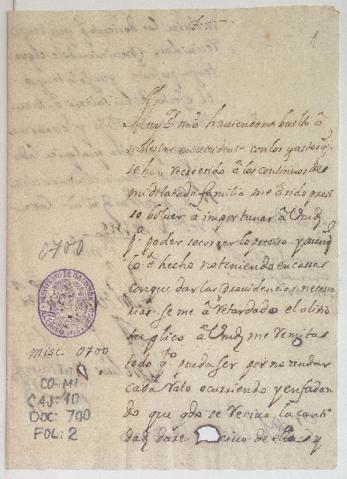 1
Sr
Muy Sr. mio haciendome buelto â
molestar mi accidente con los gastos q.
se han recrecido â los continuos de
mi dilatada familia me â sido presi
so bolver â importunar â Vmd
p. poder socorrer lo preciso y aunq
lo ê hecho no teniendo en casa
con que dar las providencias necesa
rias se me â retardado el alivio
suplico â Vmd me remita
todo q.to pueda ser por no andar
cada rato ocurriendo y enfadan
do que q.do se reciva la canti
dad
0700
MINISTERIO DE HACIENDA
misc. 0700
CO-MI
CAJ: 10
DOC: 700
FOL: 2